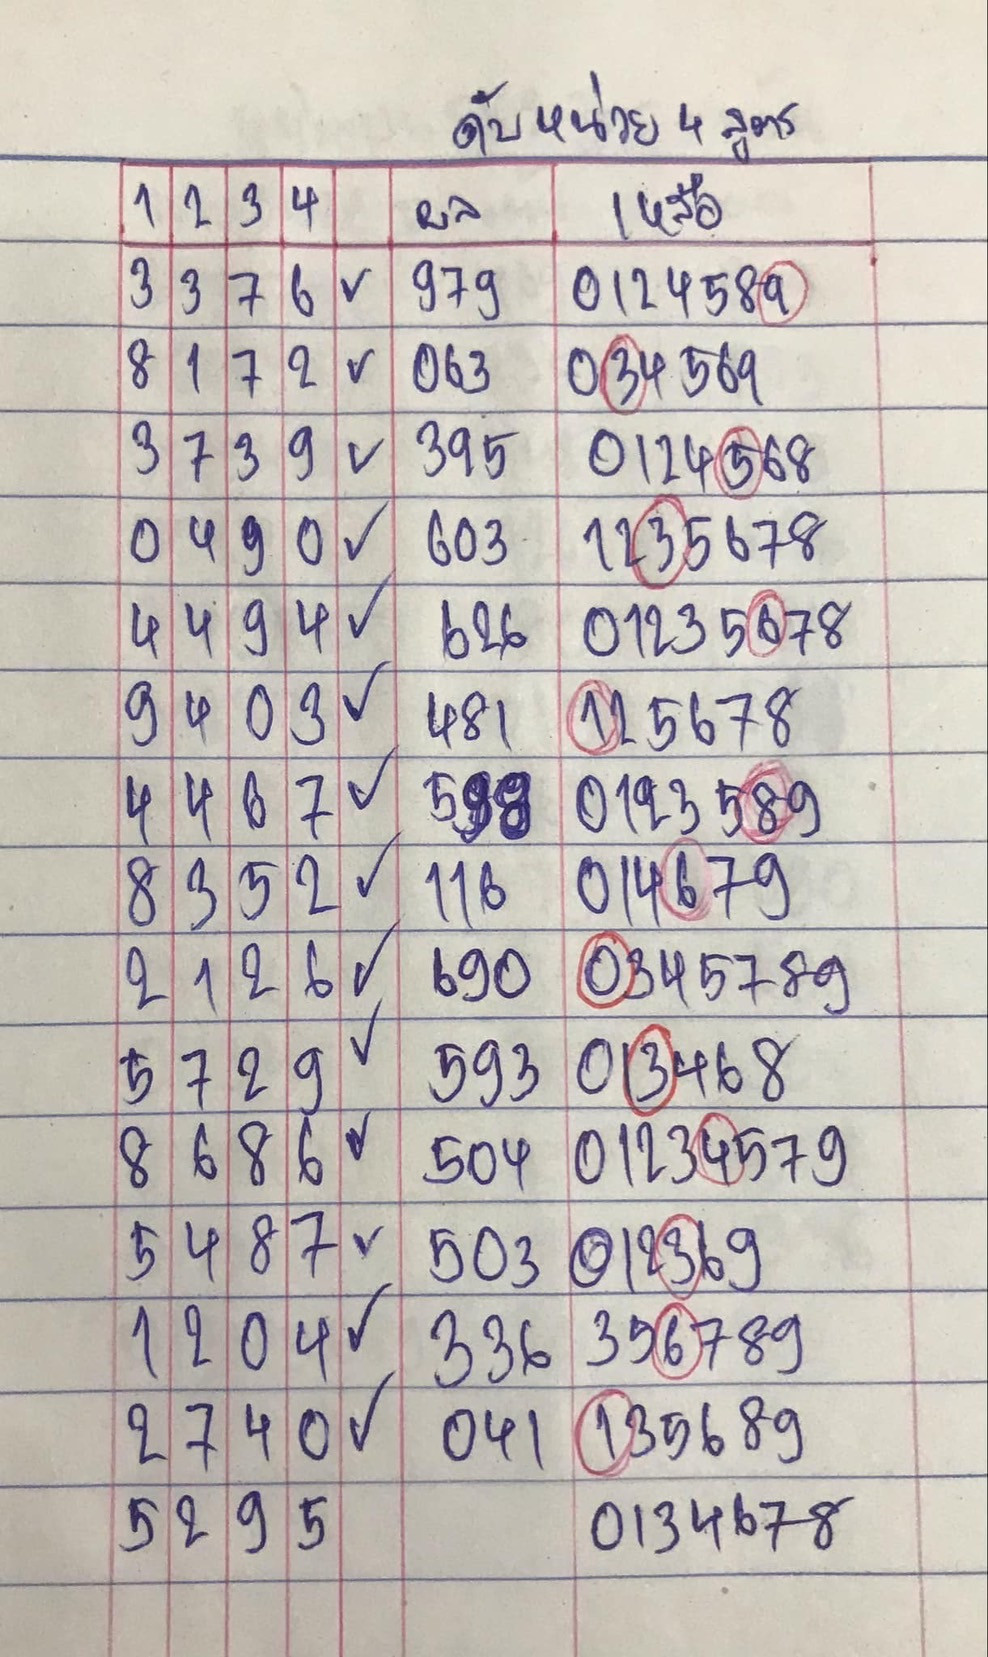 ดับหน่วย 4 สูตร
1 2 3 4 ผล เหลือ
3 3 7 6 ✓ 979 0124589
8 1 7 2 ✓ 063 034569
3 7 3 9 ✓ 395 0124568
0 4 9 0 ✓ 603 1235678
4 4 9 4 ✓ 626 01235678
9 4 0 3 ✓ 481 125678
4 4 6 7 ✓ 598 0123589
8 3 5 2 ✓ 116 014679
2 1 2 6 ✓ 690 0345789
5 7 2 9 ✓ 593 013468
8 6 8 6 ✓ 504 01234579
5 4 8 7 ✓ 503 012369
1 2 0 4 ✓ 336 356789
2 7 4 0 ✓ 041 135689
5 2 9 5 0134678